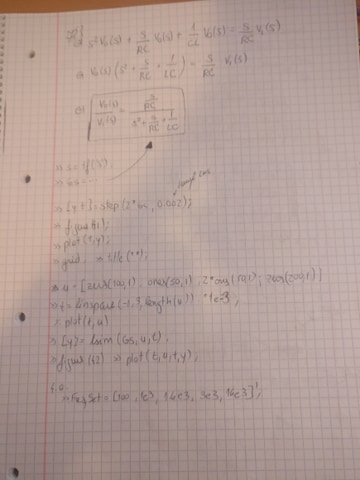 s² V₀(s) + S/RC V₀(s) + 1/CL V₀(s) = S/RC Vᵢ(s)
⇒ V₀(s) (s² + S/RC + 1/LC) = S/RC Vᵢ(s)
V₀(s)/Vᵢ(s) = (S/RC)/(s² + S/RC + 1/LC)
>> s = tf('s');
>> Gs = ...
>> [y t] = step(2*Gs, 0.002);
>> figure(1);
>> plot(t,y);
>> grid, >> title("");
>> u = [zeros(100,1); ones(50,1); 2*ones(50,1); zeros(200,1)]
>> t = linspace(-1,3,length(u)) *1e-3;
>> plot(t,u)
>> [y] = lsim(Gs,u,t);
>> figure(2) >> plot(t,u,t,y);
>> FreqSet = [100, 1e3, 1.6e3, 3e3, 16e3]';